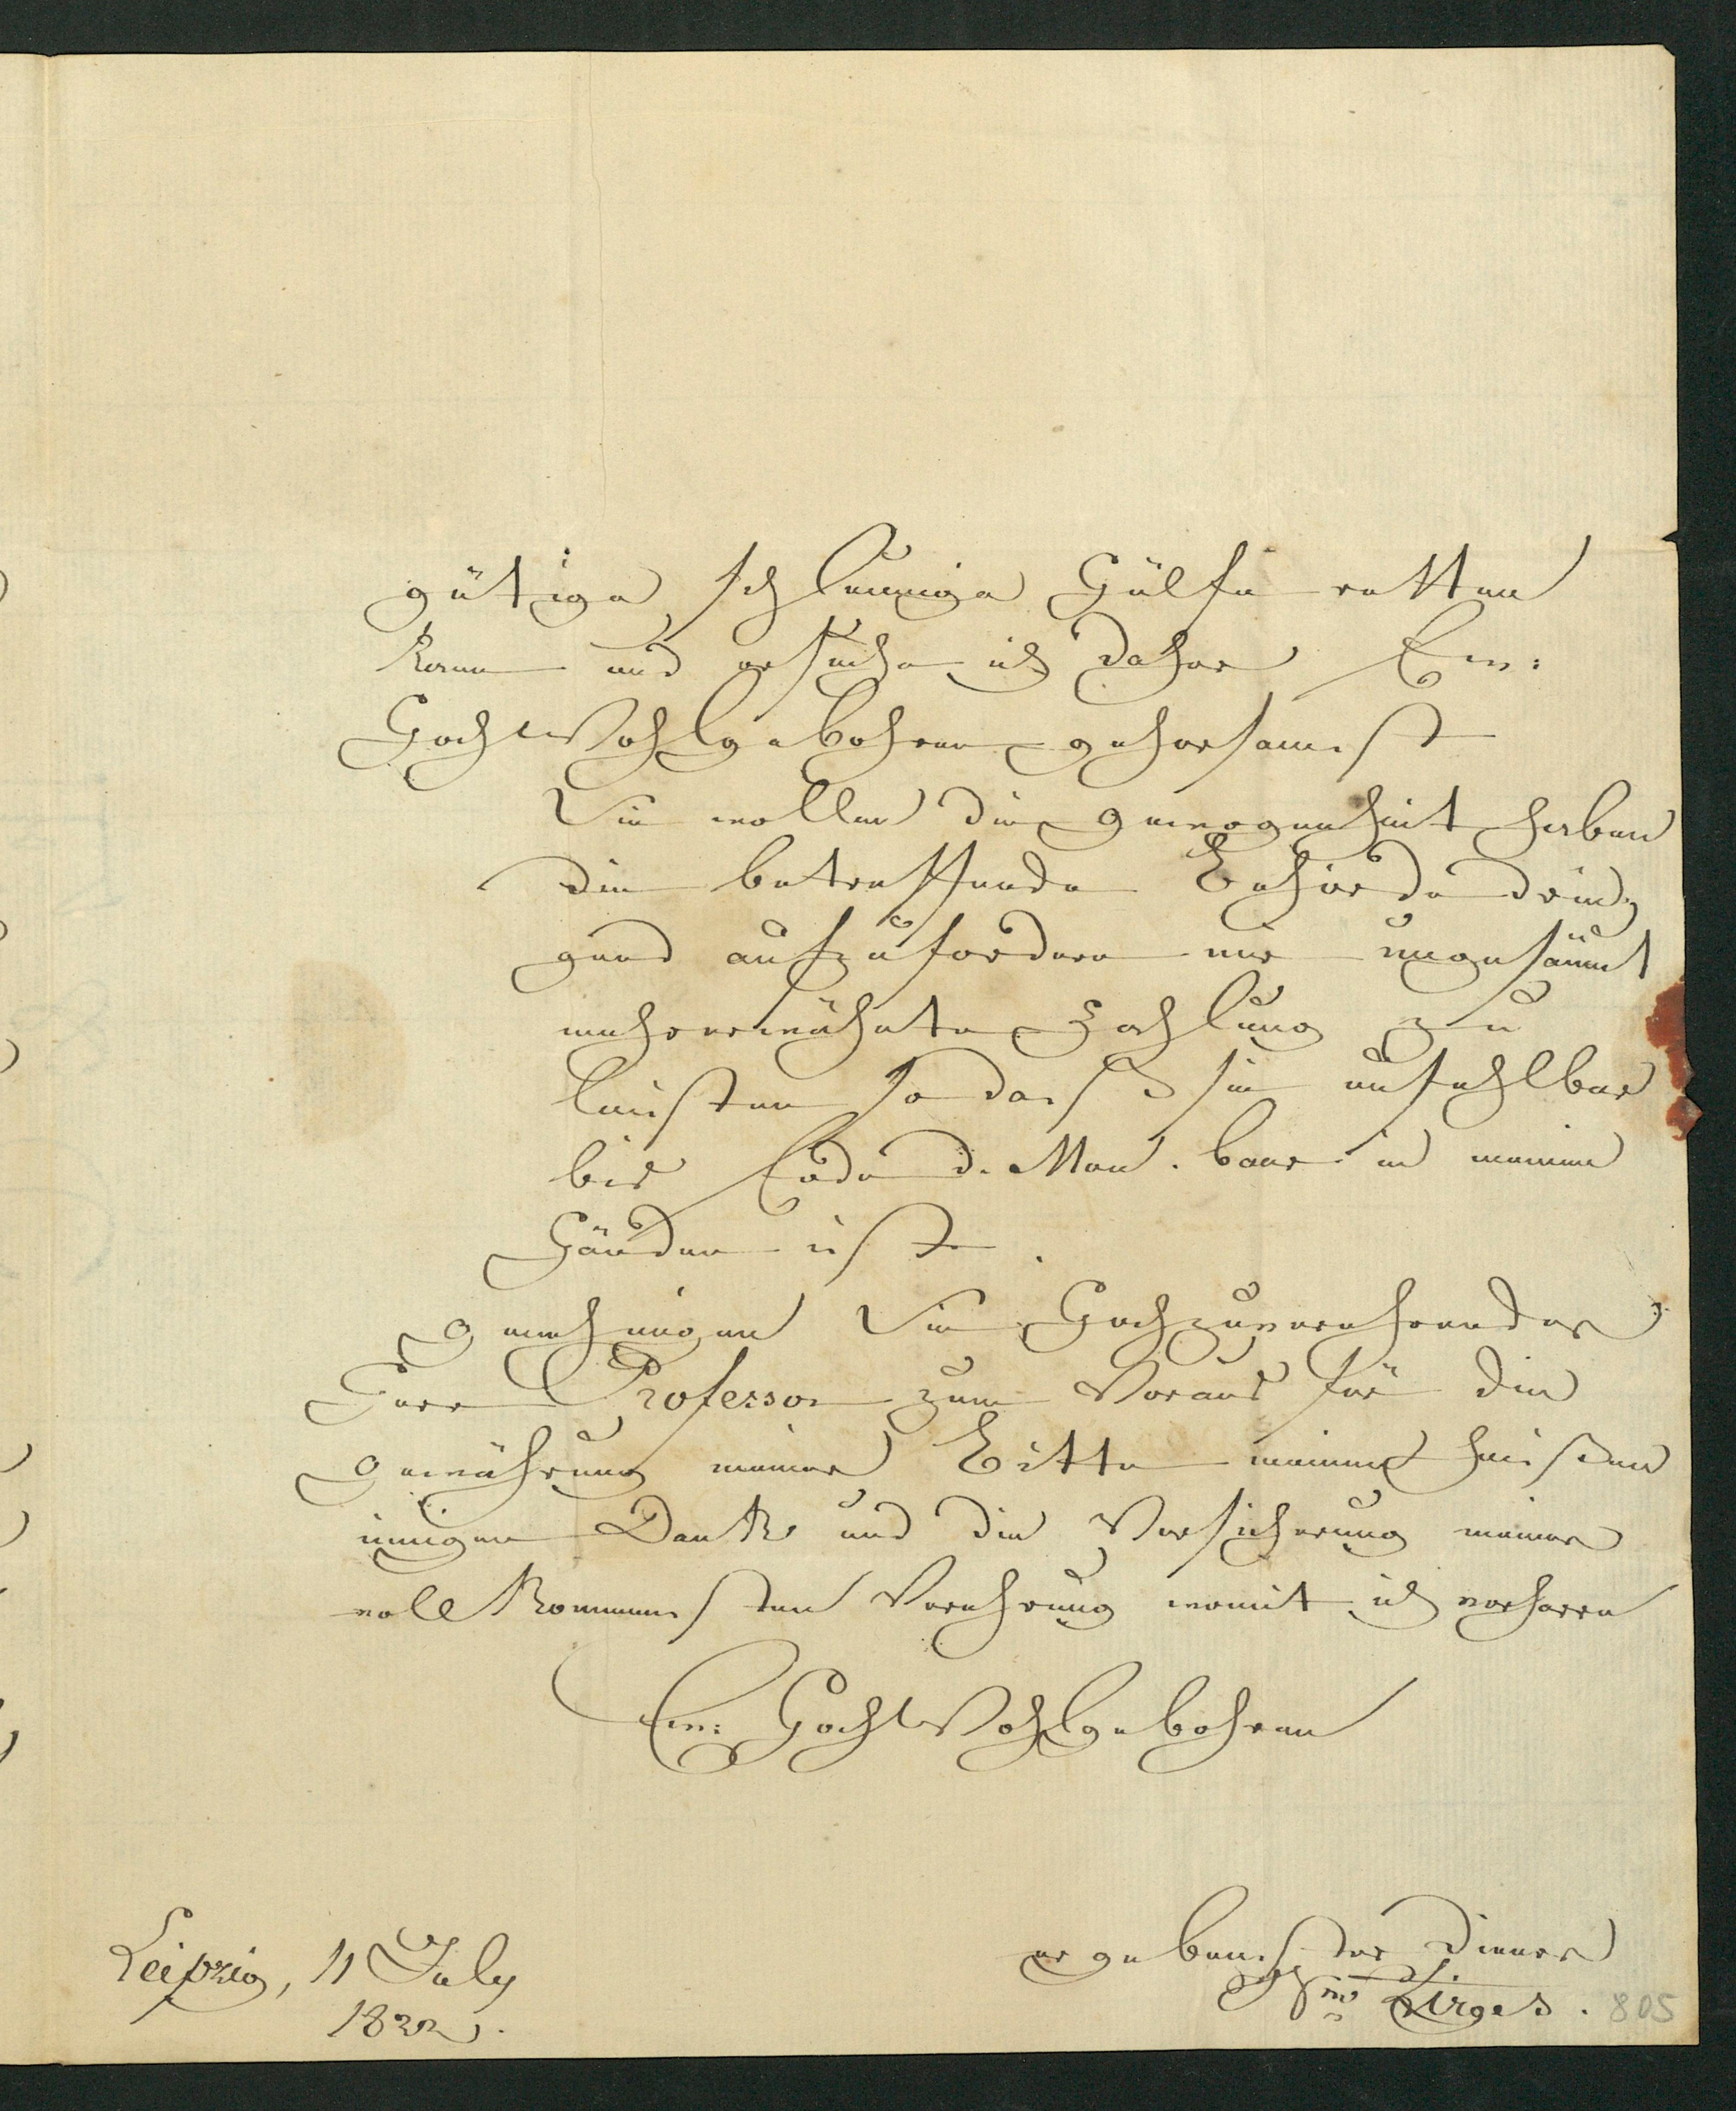 gütige schleunige Hülfe retten
kann und ersuche ich daher Ew:
HochWohlgebohren gehorsamst
Sie wollen die gewogenheit haben
die betreffende Behörde drin-
gend aufzufordern mir ungesäumt
mehrerwähnte Zahlung zu
leisten so dass sie unfehlbar
bis Ende d. Mon. baar in meinen
Händen ist.
genehmigen Sie Hochzuverehrender
Herr Professor zum Voraus für die
gewährung meiner Bitte meinen heißen
innigen Dank und die Versicherung meiner
vollkommensten Verehrung womit ich verharre
Ew: HochWohlgebohren
ergebenster Diener
Zirges.
Leipzig, 11 July
1832.
805